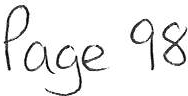 Page 98